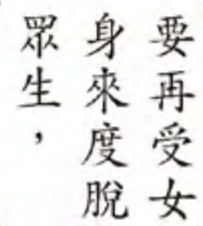 要再受女
身來度脫
眾生，